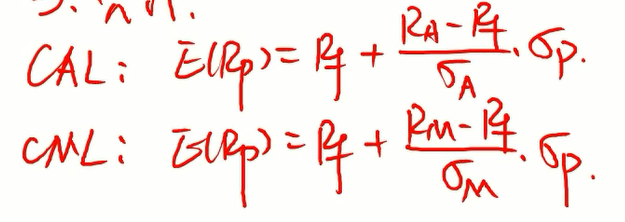 CAL: E(Rp) = Rf + (RA - Rf)/σA · σp.
CML: E(Rp) = Rf + (RM - Rf)/σM · σp.